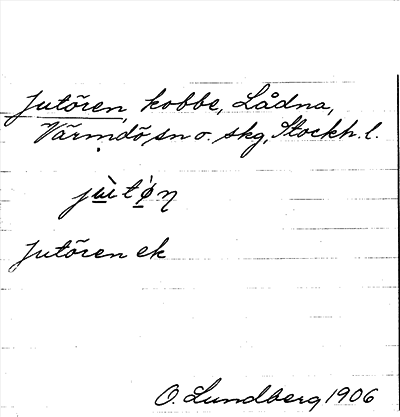 Jutören, kobbe, Lådna,
Värmdö sn o. skg, Stockh. l.
Jutören ek
O. Lundberg 1906